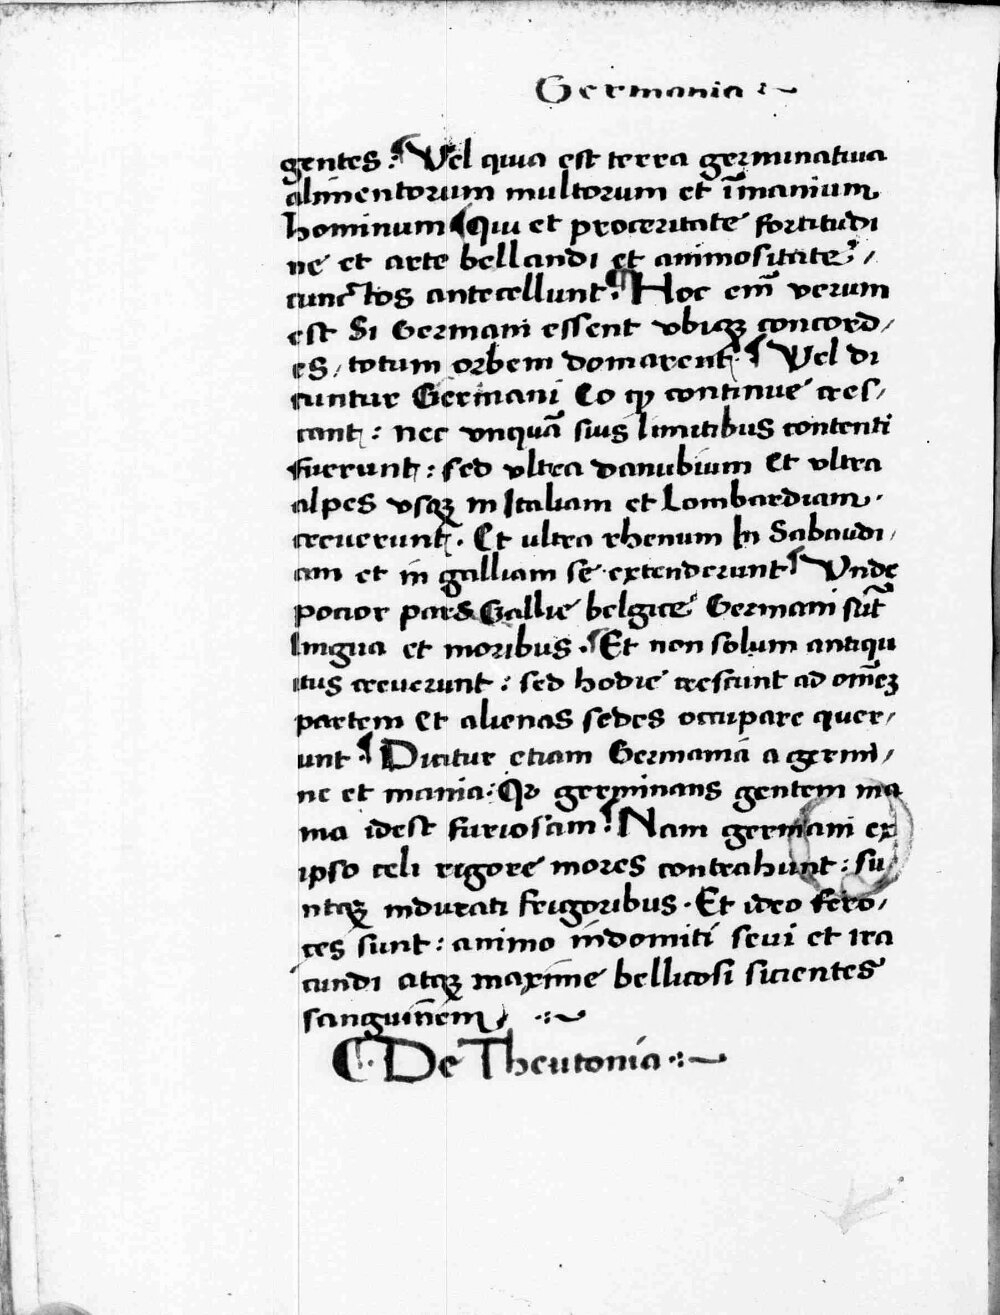 Germania :~
gentes : ¶ Vel quia est terra germinatiua
alimentorum multorum et īmanium
hominum ¶ Qui et proceritate fortitudi
ne et arte bellandi et animositate /
cunctos antecellunt. ¶ Hoc em̄ verum
est Si Germani essent vbiqꝫ concord /
es / totum orbem domarent. ¶ Vel di
cuntur Germani Eo ꝙ continue cres /
cant : nec vnquā suis limitibus contenti
fuerunt : sed vltra danubium Et vltra
alpes vsqꝫ in Italiam et Lombardiam .
creuerunt . Et ultra rhenum In Sabaudi /
am et in galliam se extenderunt ¶ Vnde
pocior pars Gallie belgice Germani sūt
lingua et moribus . ¶ Et non solum antiqu
itus creuerunt : sed hodie crescunt ad om̄eꝫ
partem Et alienas sedes occupare quer /
unt ¶ Dicitur etiam Germania a germi /
ne et mania : Qꝛ germinans gentem ma
nia idest furiosam : ¶ Nam germani ex
ipso celi rigore mores contrahunt : su /
ntqꝫ indurati frigoribus . Et ideo fero /
ces sunt : animo indomiti seui et ira
cundi atqꝫ maxime bellicosi sicientes
sanguinem / .:~
¶ . De Theutonia .:~